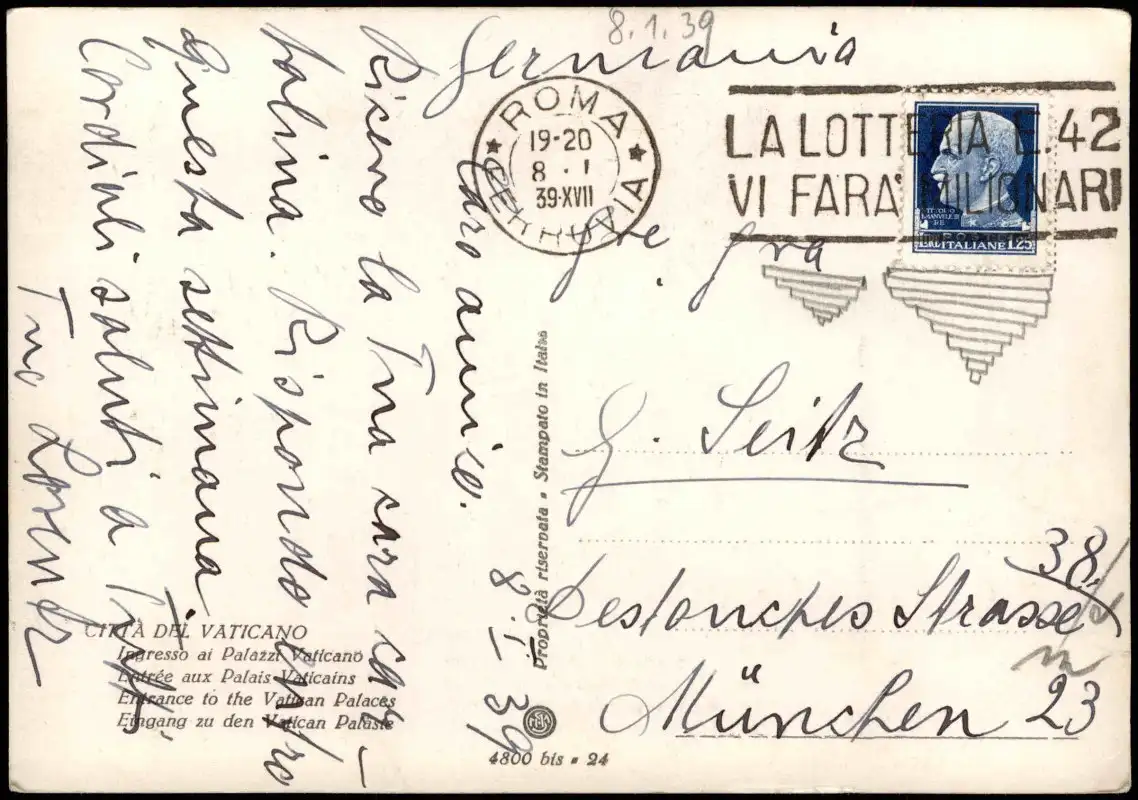 8.1.39
Germania
ROMA
19-20
8 · I
39·XVII
FERROVIA
LA LOTTERIA E. 42
VI FARA' MILIONARI
VITTORIO
EMANUELE III
RE
ITALIANE L 1,25
G. Seitz
38
Destouches Strasse
München 23
Caro amico.
Ricevo la Tua cara car-
tolina. Rispondo entro
questa settimana
Cordiali saluti a Tutti,
Tuo Lorenz
8.I.39
Proprietà riservata • Stampato in Italia
CITTÀ DEL VATICANO
Ingresso ai Palazzi Vaticano
Entrée aux Palais Vaticains
Entrance to the Vatican Palaces
Eingang zu den Vatican Paläste
4800 bis • 24